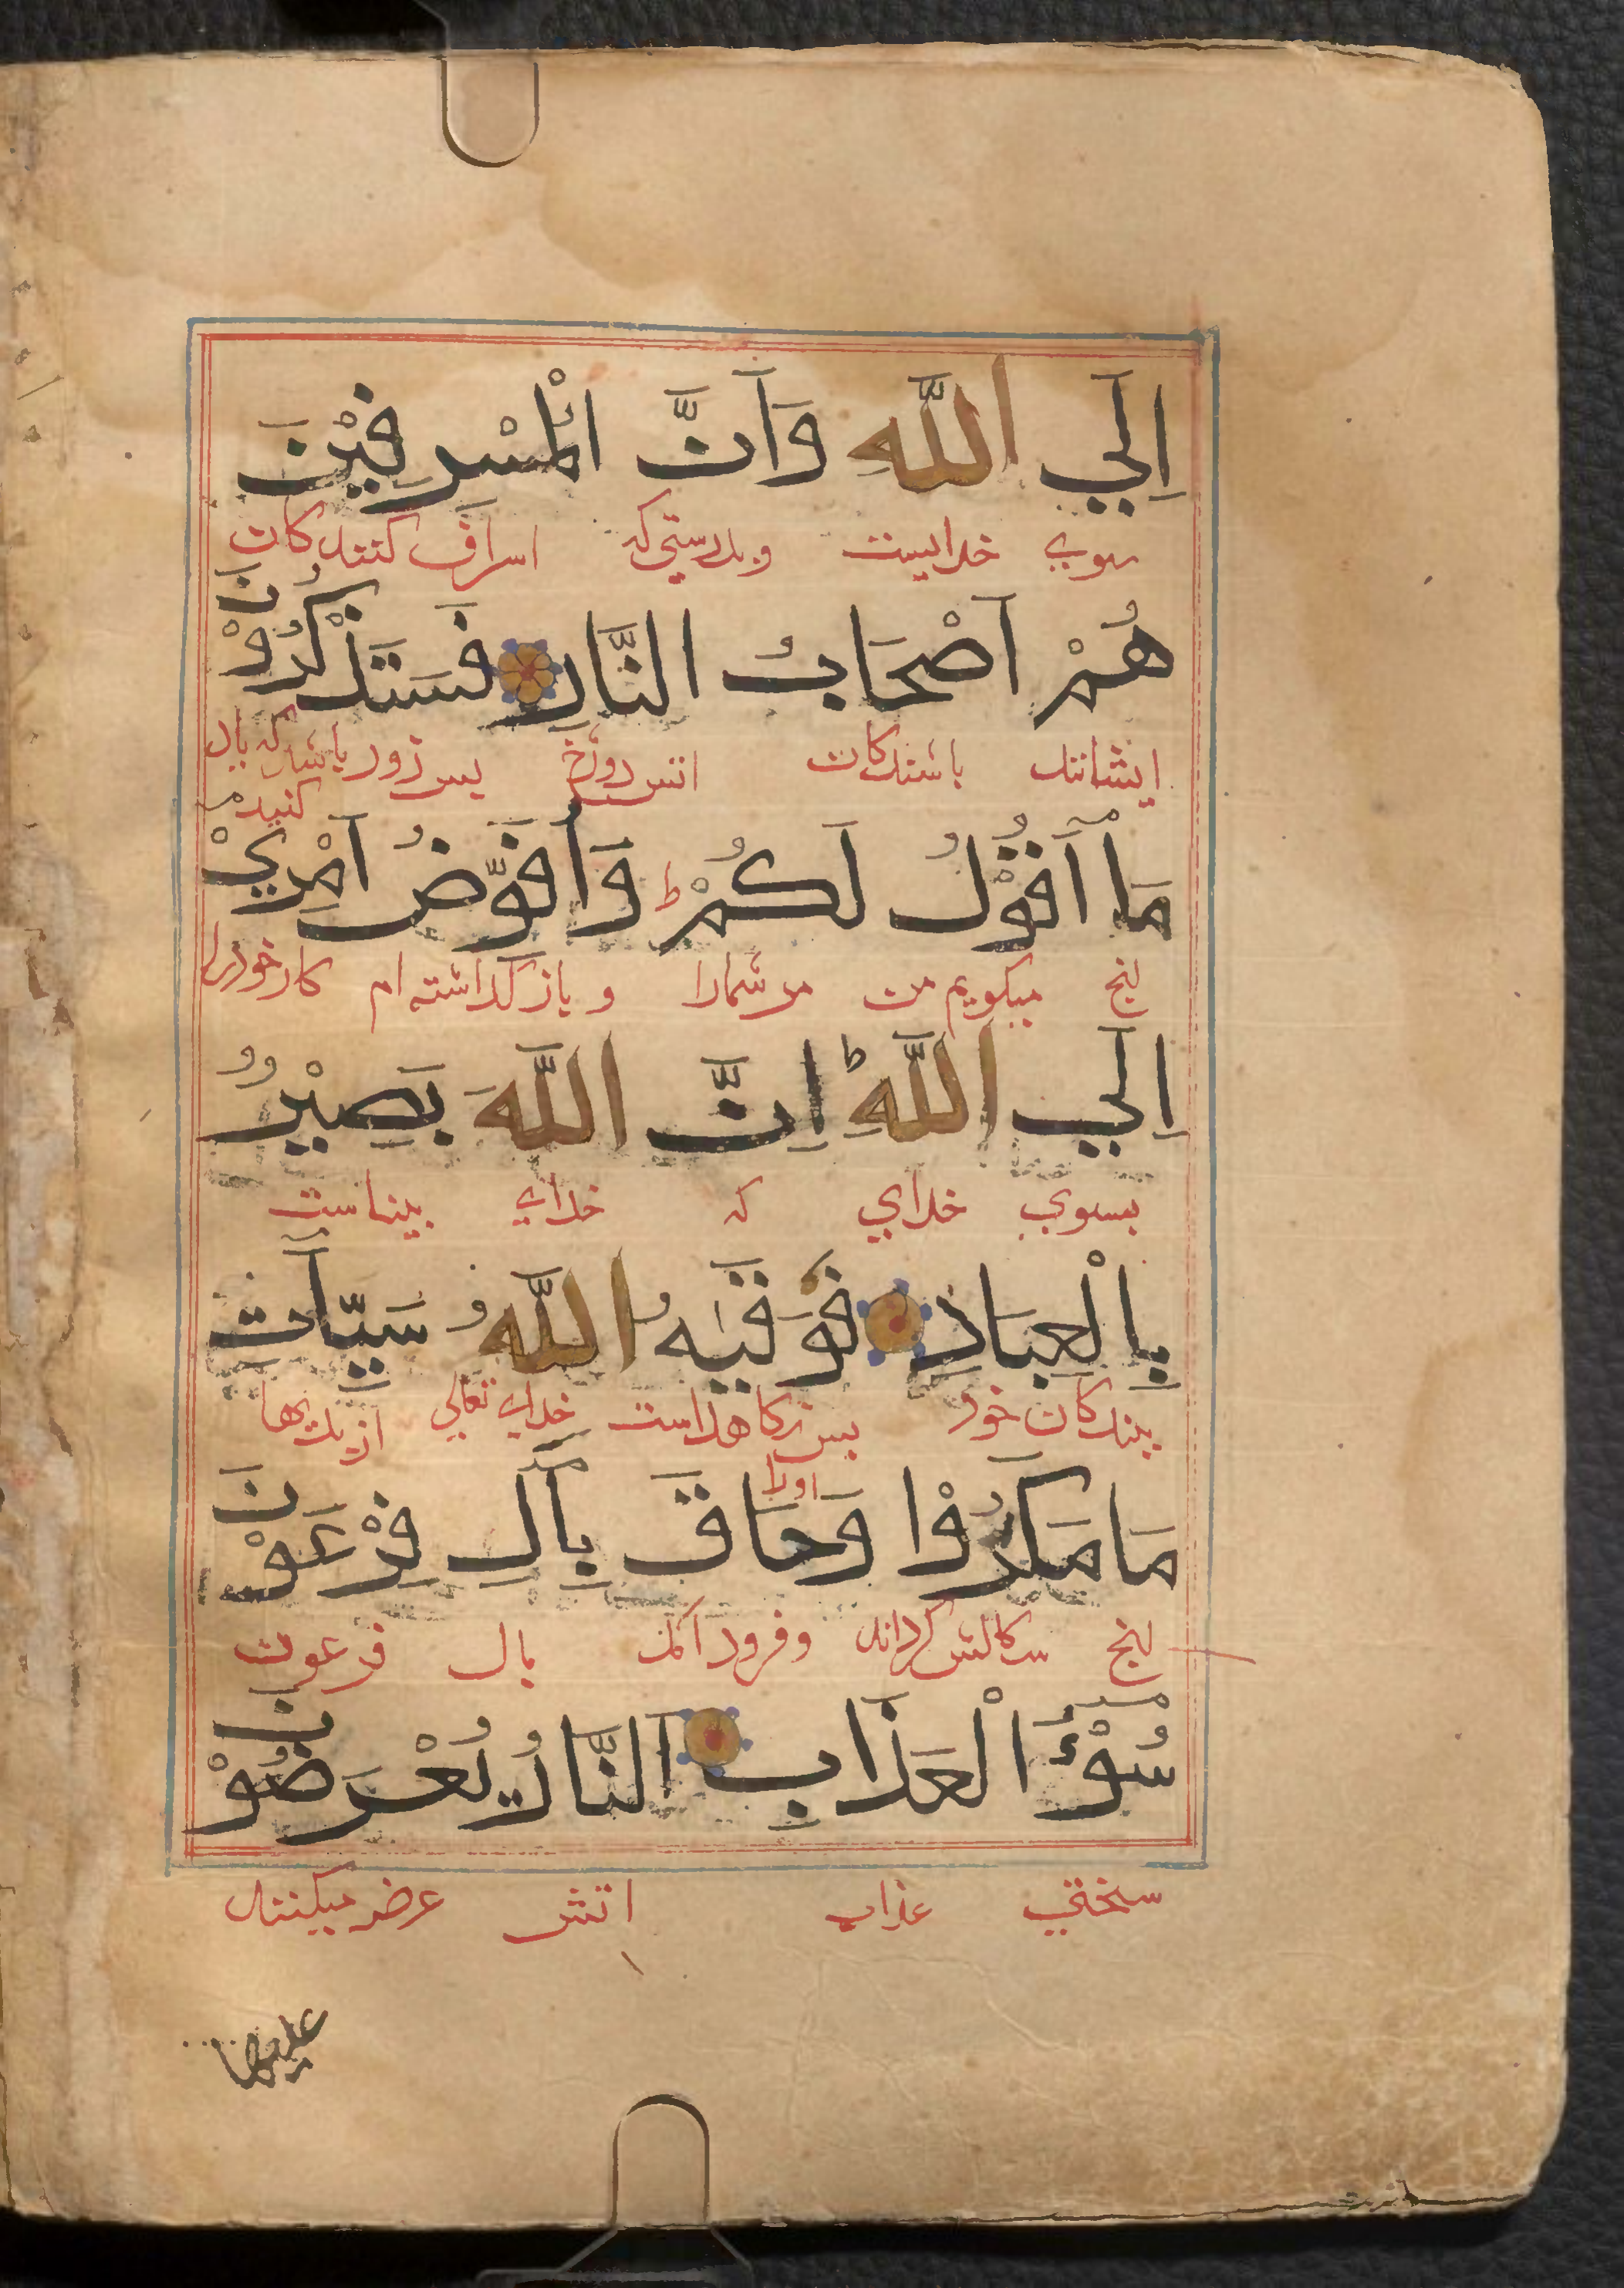 اِلَي اللّٰهِ وَاَنَّ الْمُسْرِفِيْنَ
بسوي خدايست وبدرستي كه اسراف كنندكان
هُمْ اَصْحَابُ النَّارِ فَسَتَذْكُرُوْنَ
ايشانند باشندكان اتش دوزخ پس زود باشد كه ياد كنيد
مَا اَقُوْلُ لَكُمْ ط وَاُفَوِّضُ اَمْرِيْ
انچ ميكويم من مر شمارا و باز كذاشته ام كار خود را
اِلَي اللّٰهِ ط اِنَّ اللّٰهَ بَصِيْرٌ
بسوي خداي كه خداي بيناست
بِالْعِبَادِ فَوَقٰيهُ اللّٰهُ سَيِّاٰتِ
ببندكان خود پس نكاهداشت اورا خداي تعالي از بديها
مَا مَكَرُوْا وَحَاقَ بِاٰلِ فِرْعَوْنَ
انچ سكالش كردند وفرود آمد بال فرعون
سُوْٓءُ الْعَذَابِ اَلنَّارُ يُعْرَضُوْنَ
سختي عذاب اتش عرض ميكنند
عليها